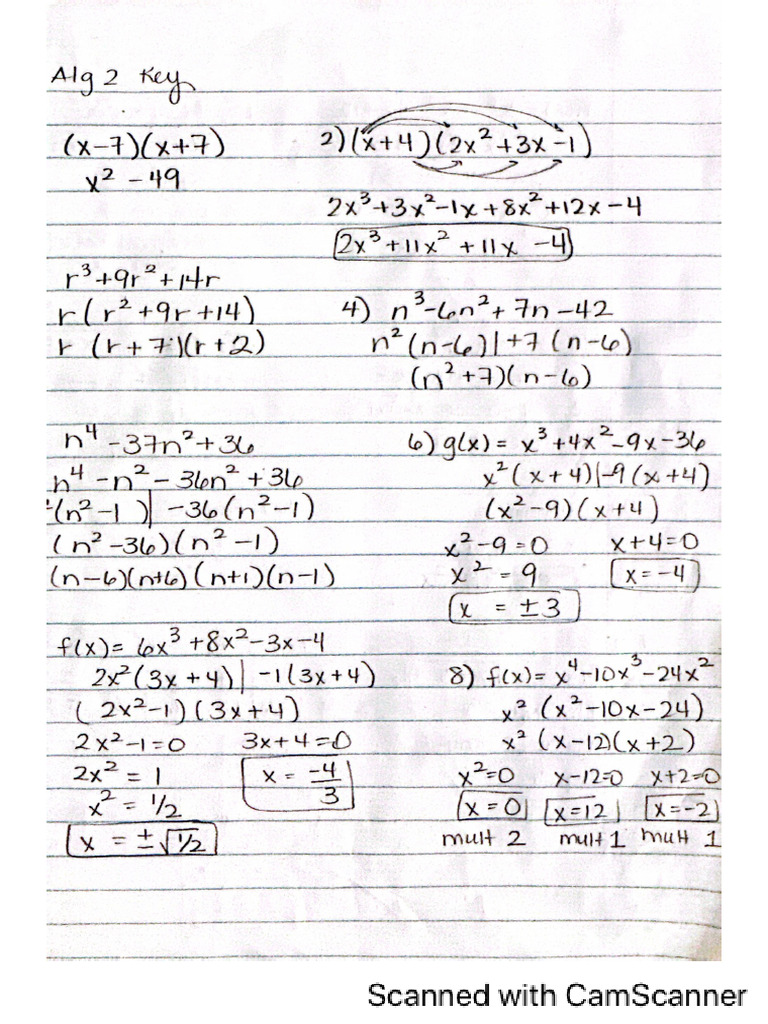 Alg 2 Key
(x-7)(x+7)
x² -49
2) (x+4)(2x²+3x-1)
2x³+3x²-1x+8x²+12x-4
2x³+11x²+11x -4
r³+9r²+14r
r(r²+9r+14)
r (r+7)(r+2)
4) n³-6n²+7n-42
n²(n-6)|+7(n-6)
(n²+7)(n-6)
n⁴-37n²+36
n⁴-n²-36n²+36
(n²-1)|-36(n²-1)
(n²-36)(n²-1)
(n-6)(n+6)(n+1)(n-1)
6) g(x)= x³+4x²-9x-36
x²(x+4)|-9(x+4)
(x²-9)(x+4)
x²-9=0 x+4=0
x²=9 x=-4
x = ±3
f(x)= 6x³+8x²-3x-4
2x²(3x+4)|-1(3x+4)
(2x²-1)(3x+4)
2x²-1=0 3x+4=0
2x²=1 x = -4/3
x²=1/2
x = ±√1/2
8) f(x)= x⁴-10x³-24x²
x²(x²-10x-24)
x²(x-12)(x+2)
x²=0 x-12=0 x+2=0
x=0 x=12 x=-2
mult 2 mult 1 mult 1
Scanned with CamScanner